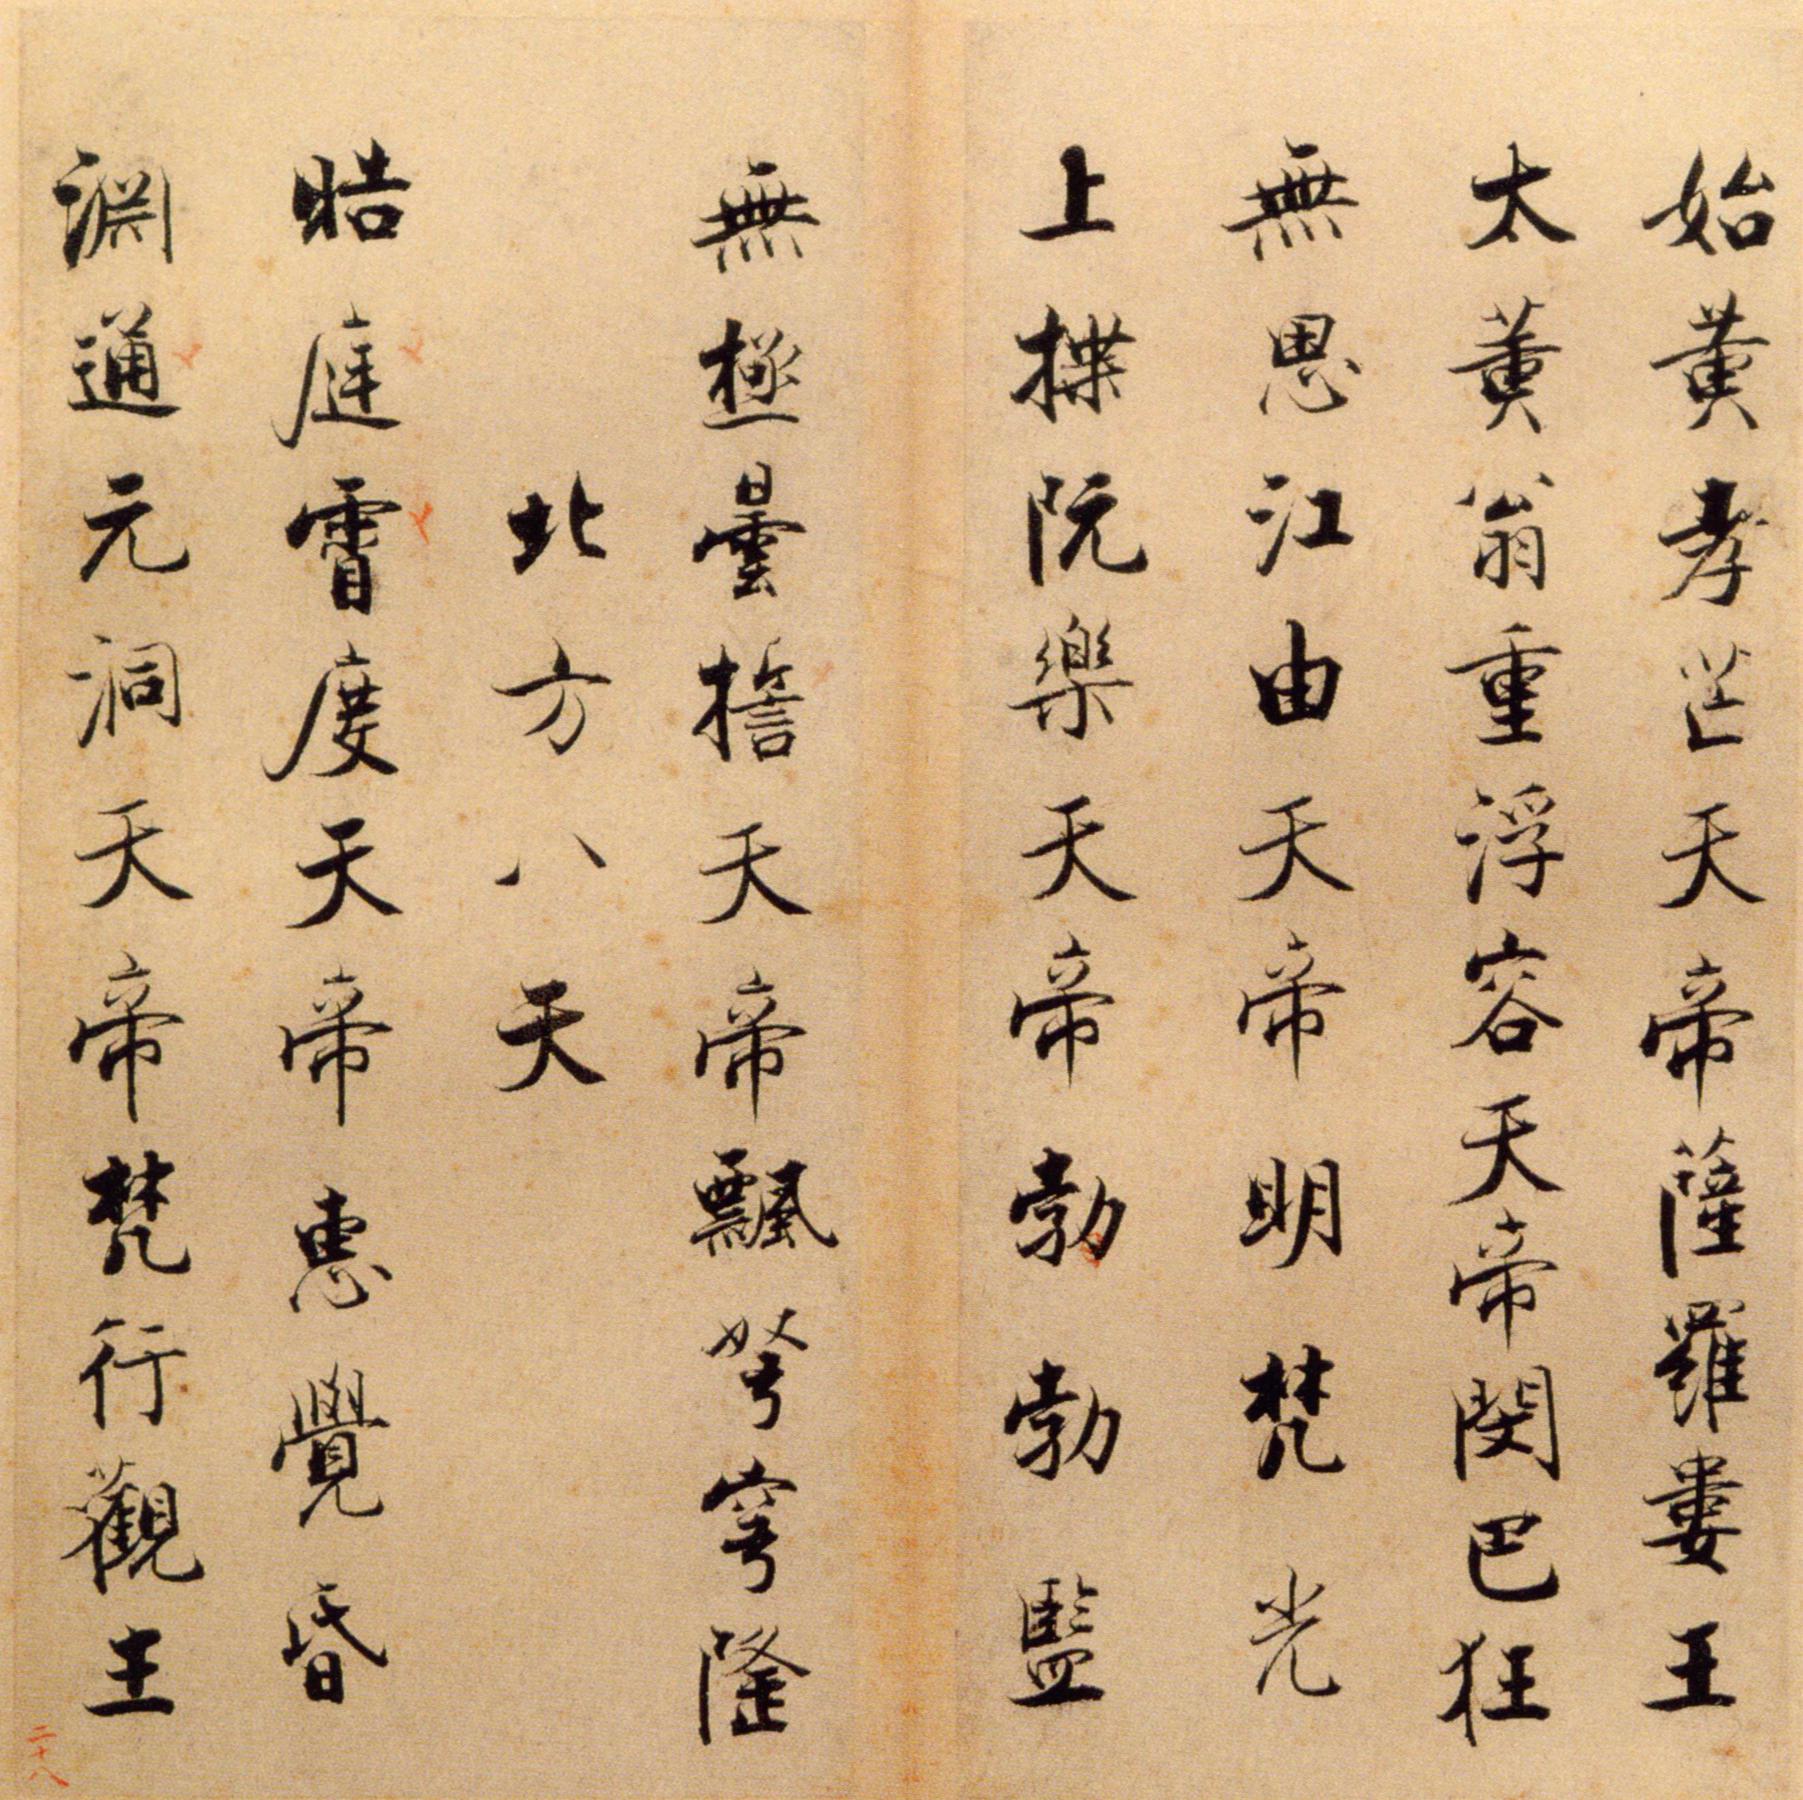 始黃孝芒天帝薩羅婁王
太黃翁重浮容天帝閔巴狂
無思江由天帝明梵光
上揲阮樂天帝勃勃監
無極曇誓天帝飄弩穹隆
北方八天
皓庭霄度天帝惠覺昏
淵通元洞天帝梵行觀王
二十八